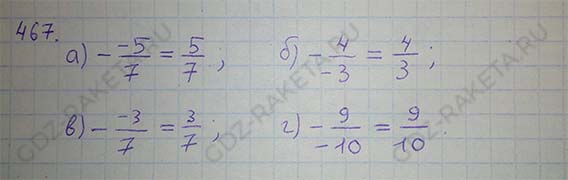 467.
а) - -5/7 = 5/7 ; б) - 4/-3 = 4/3 ;
в) - -3/7 = 3/7 ; г) - 9/-10 = 9/10 .
GDZ-RAKETA.RU
GDZ-RAKETA.RU
GDZ-RAKETA.RU
GDZ-RAKETA.RU